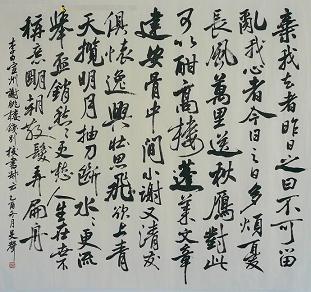 棄我去者昨日之日不可留
亂我心者今日之日多煩憂
長風萬里送秋鴈對此
可以酣高樓蓬萊文章
建安骨中間小謝又清發
俱懷逸興壯思飛欲上青
天攬明月抽刀斷水々更流
舉杯銷愁々更愁人生在世不
稱意明朝散髮弄扁舟
李白宣州謝朓樓餞別校書叔云 冬月